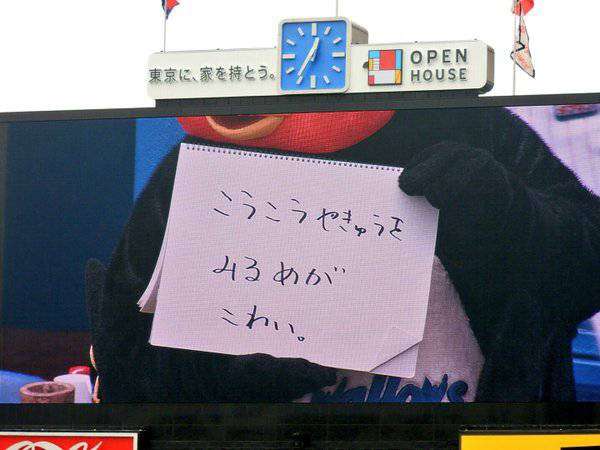 東京に、家を持とう。
OPEN
HOUSE
こうこうやきゅうを
みるめが
こわい。
wallows